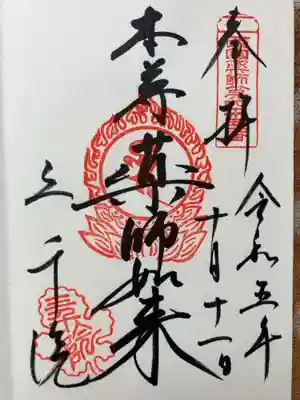 奉拝
令和五年
十月十一日
本尊
薬師如来
三千院